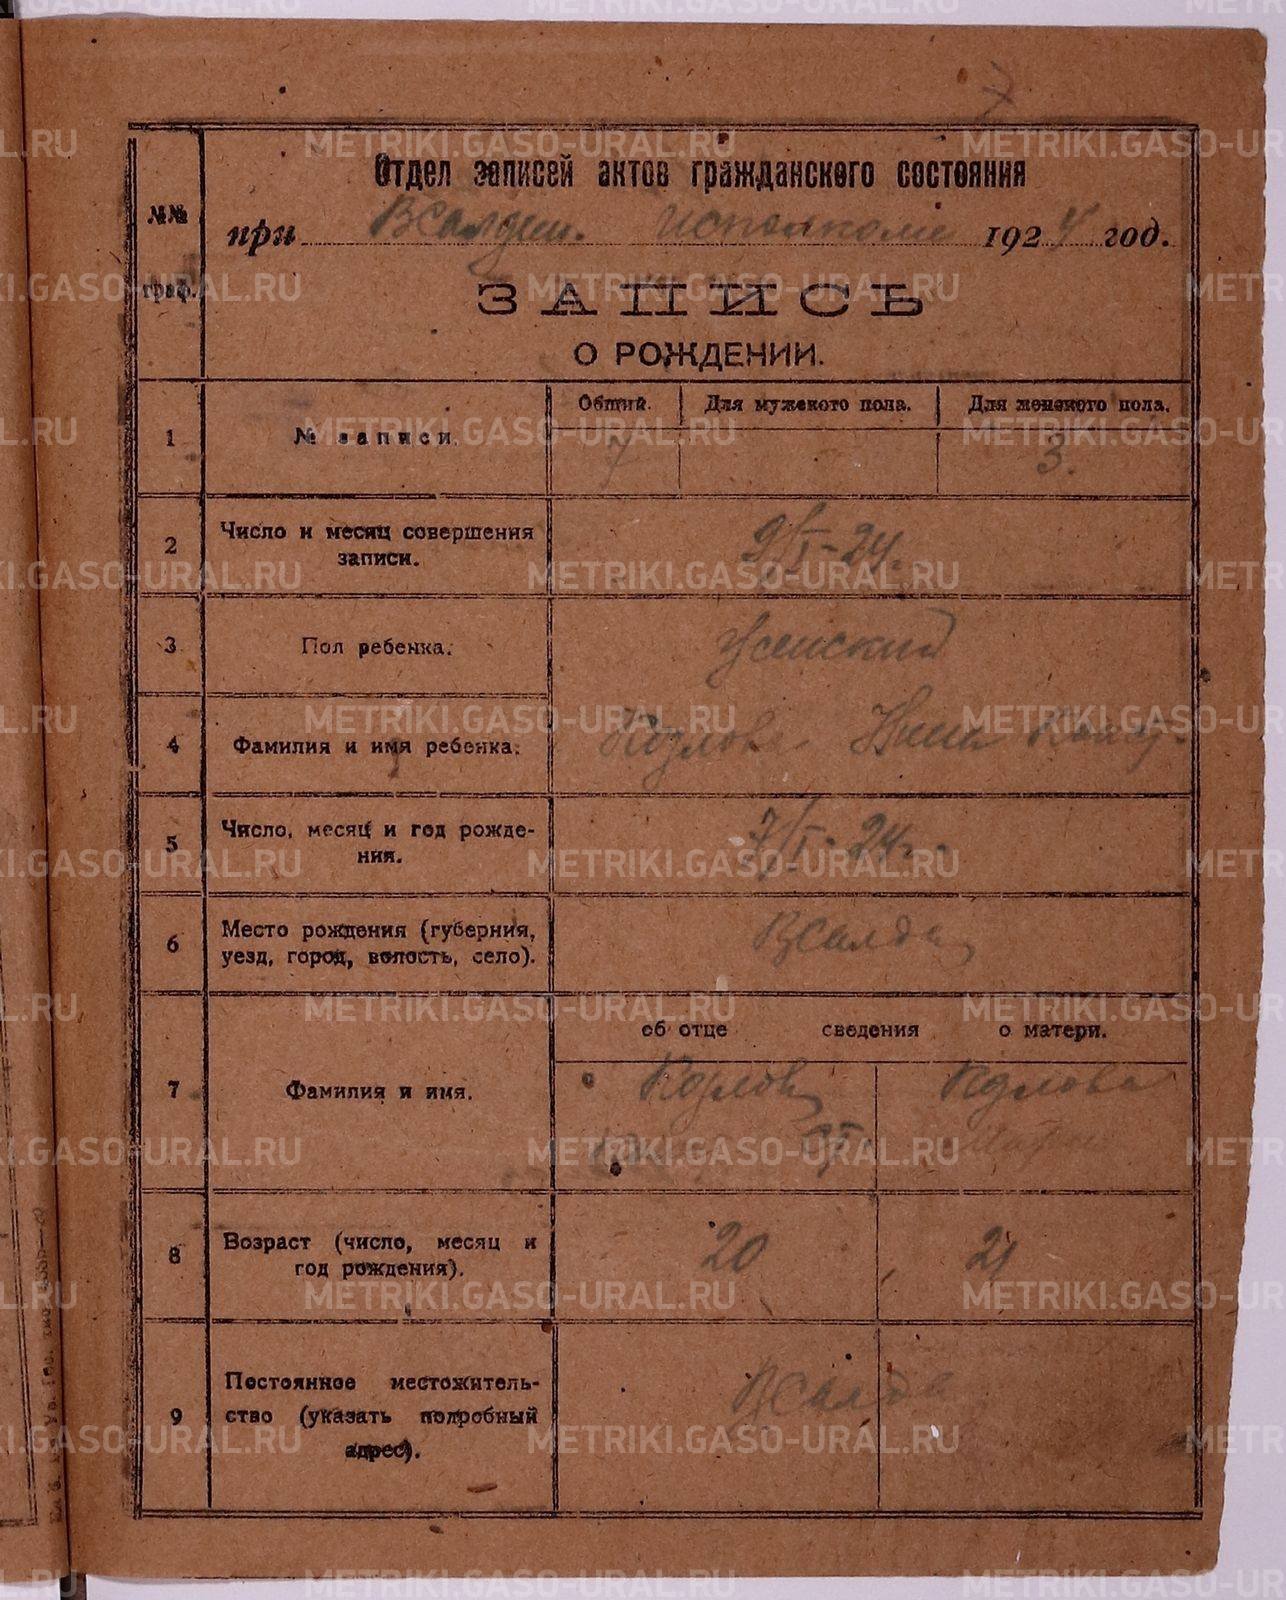 7
Отдел записей актов гражданского состояния
№№ граф.
при ВСалдин. исполкоме 1924 год.
ЗАПИСЬ
О РОЖДЕНИИ.
Общий. Для мужского пола. Для женского пола.
1 № записи. 7 3.
2 Число и месяц совершения записи. 9/I-24.
3 Пол ребенка. Женский
4 Фамилия и имя ребенка. Козлова Нина
5 Число, месяц и год рождения. 7/I-24.
6 Место рождения (губерния, уезд, город, волость, село). ВСалда
об отце сведения о матери.
7 Фамилия и имя. Козлов Козлова
8 Возраст (число, месяц и год рождения). 20 21
9 Постоянное местожительство (указать подробный адрес). ВСалда
METRIKI.GASO-URAL.RU